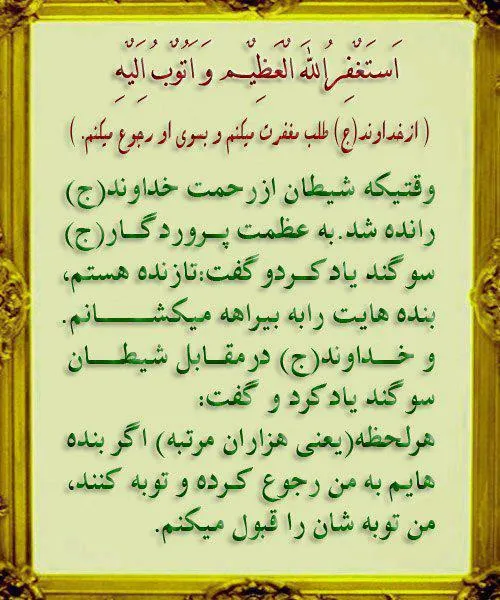 اَستَغْفِرُاللهَ الْعَظِیْم وَ اَتُوْبُ اِلَیْهِ
( ازخداوند(ج) طلب مغفرت میکنم و بسوی او رجوع میکنم. )
وقتیکه شیطان ازرحمت خداوند(ج)
رانده شد.به عظمت پروردگار(ج)
سوگند یادکردوگفت:تازنده هستم،
بنده هایت رابه بیراهه میکشانم.
و خداوند(ج) درمقابل شیطان
سوگند یادکرد و گفت:
هرلحظه(یعنی هزاران مرتبه) اگر بنده
هایم به من رجوع کرده و توبه کنند،
من توبه شان را قبول میکنم.